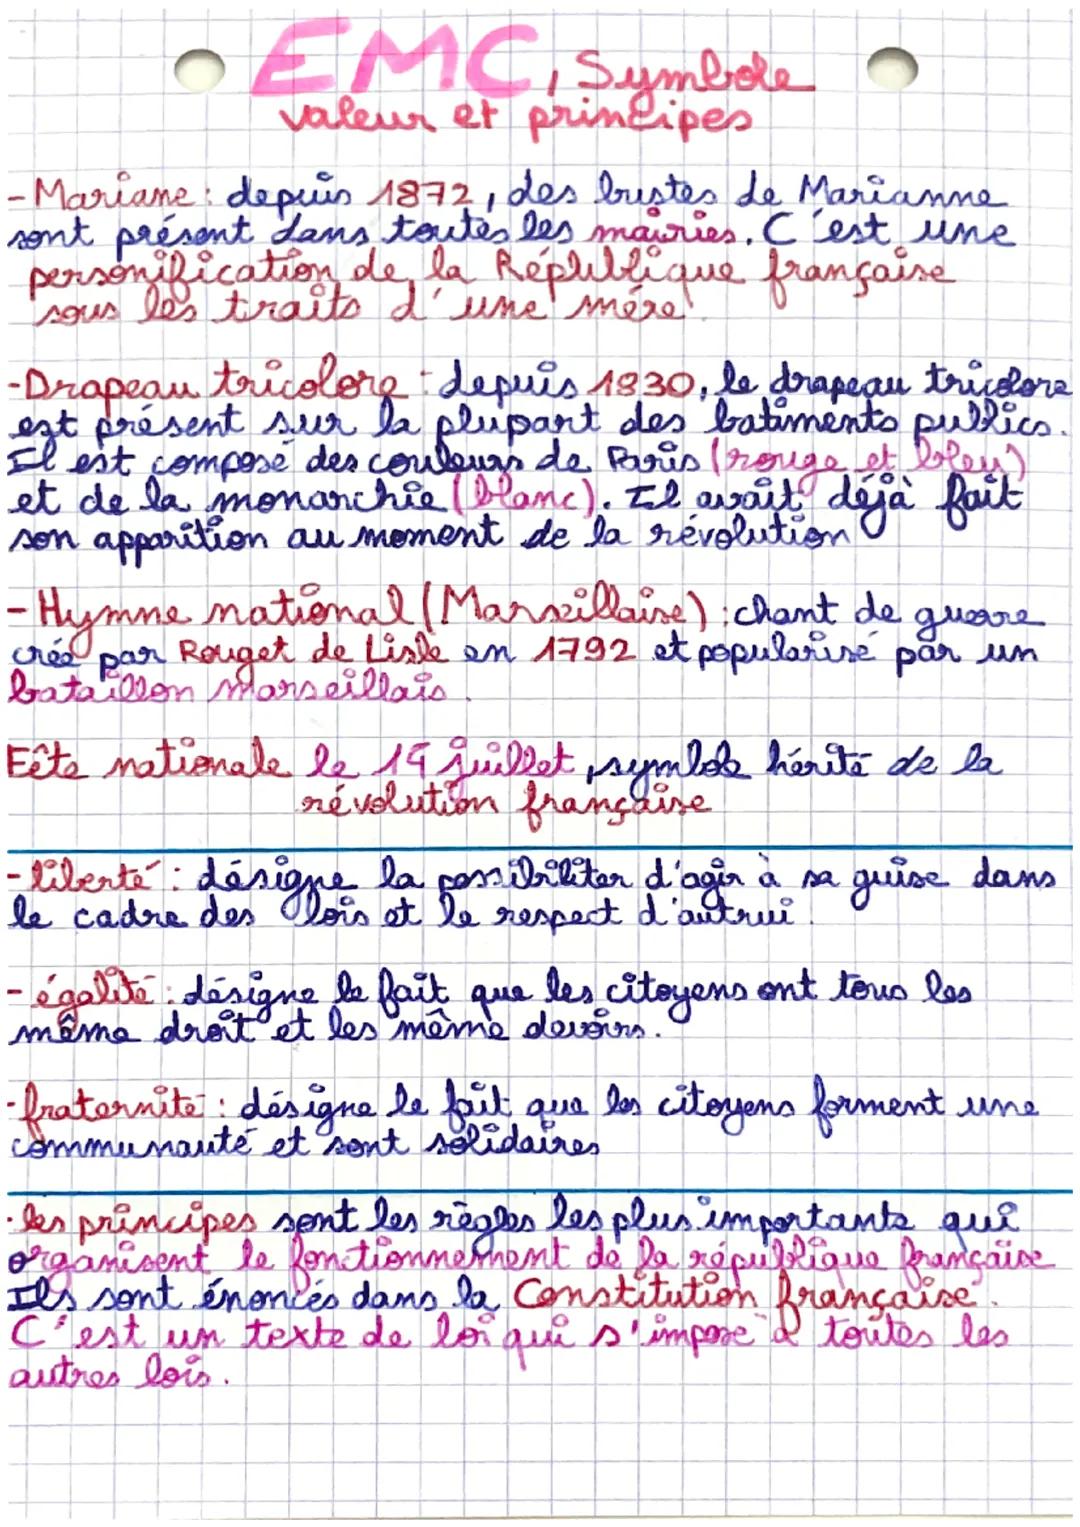 EMC, Symbole
valeur et principes
- Mariane : depuis 1872, des bustes de Marianne
sont présent dans toutes les mairies. C'est une
personification de la Républiique française
sous les traits d'une mère.
- Drapeau tricolore : depuis 1830, le drapeau tricolore
est présent sur la plupart des batiments publics.
Il est composé des couleurs de Paris (rouge et bleu)
et de la monarchie (blanc). Il avait déjà fait
son apparition au moment de la révolution
- Hymne national (Marseillaise) : chant de guerre
créé par Rouget de Lisle en 1792 et popularisé par un
bataillon marseillais.
Fête nationale le 14 juillet, symbole hérité de la
révolution française
- liberté : désigne la possibiliter d'agir à sa guise dans
le cadre des lois et le respect d'autrui.
- égalité : désigne le fait que les citoyens ont tous les
même droit et les même devoirs.
- fraternité : désigne le fait que les citoyens forment une
communauté et sont solidaires
- les principes sont les règles les plus importants qui
organisent le fonctionnement de la république française
Ils sont énoncés dans la Constitution française.
C'est un texte de loi qui s'impose à toutes les
autres lois.